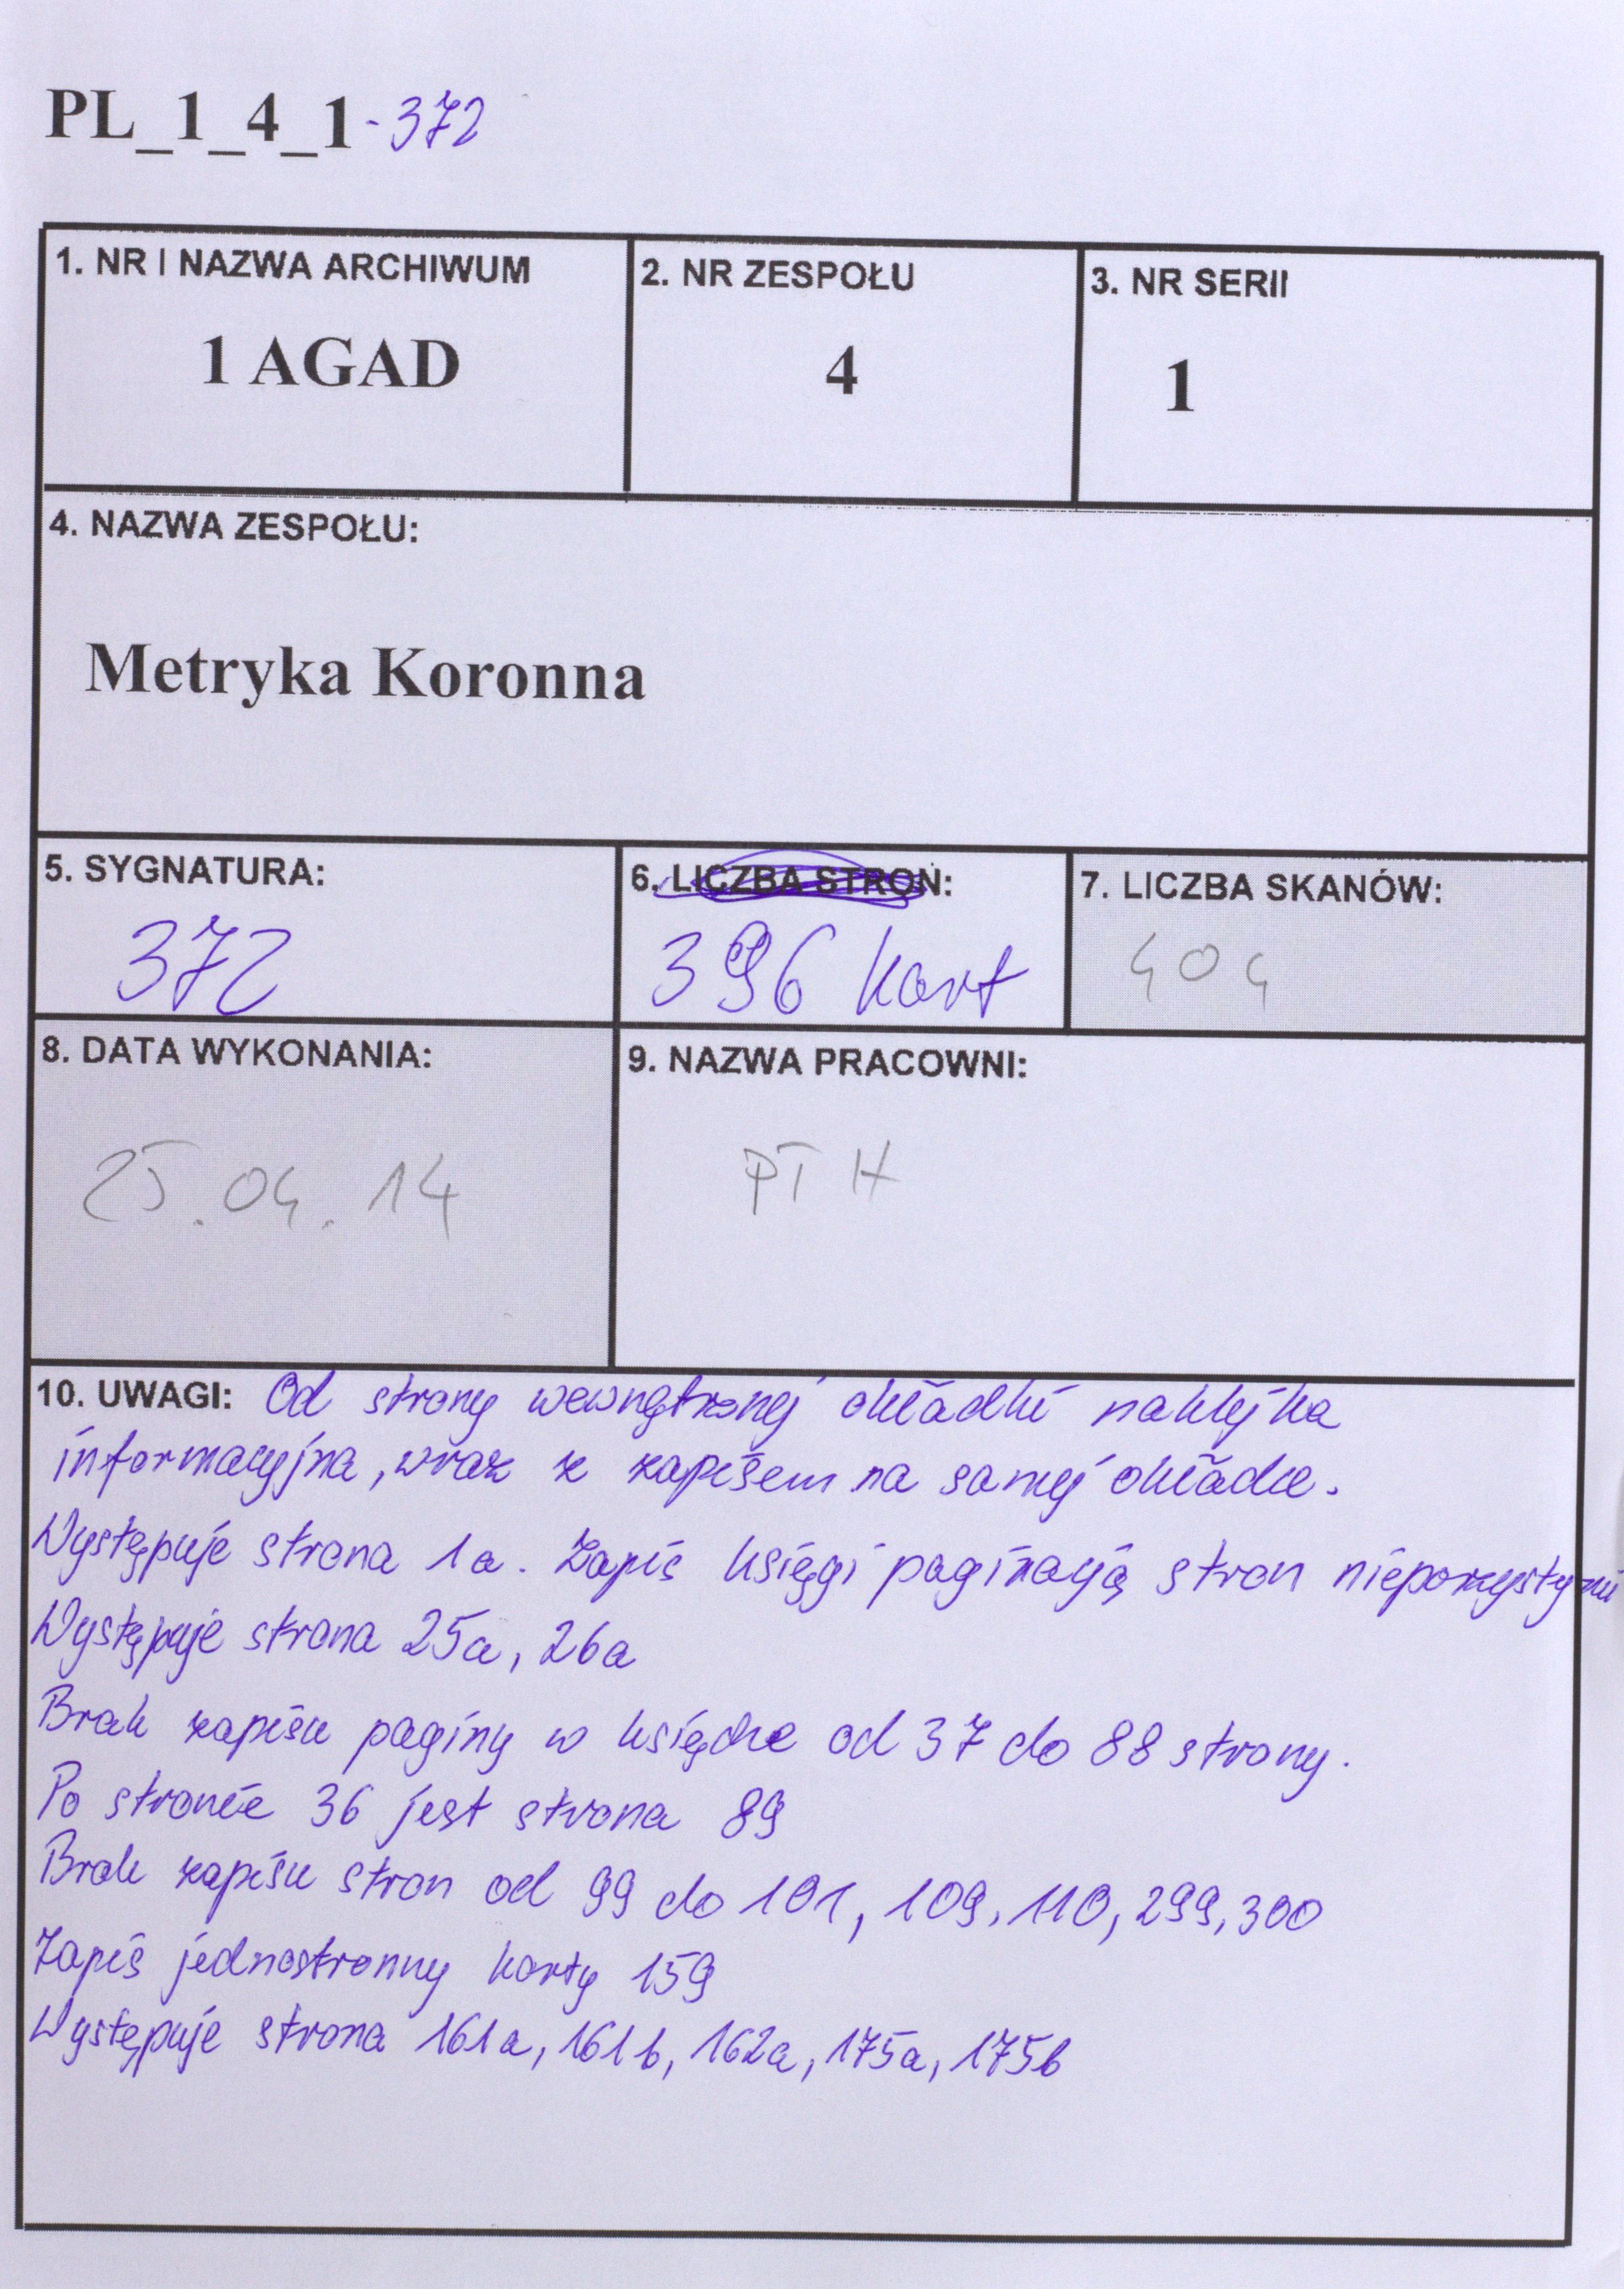 PL_1_4_1-372
1. NR I NAZWA ARCHIWUM
1 AGAD
2. NR ZESPOŁU
4
3. NR SERII
1
4. NAZWA ZESPOŁU:
Metryka Koronna
5. SYGNATURA:
372
6. LICZBA STRON:
396 kart
7. LICZBA SKANÓW:
404
8. DATA WYKONANIA:
25.04.14
9. NAZWA PRACOWNI:
PTH
10. UWAGI: Od strony wewnętrznej okładki naklejka
informacyjna, wraz z zapisem na samej okładce.
Występuje strona 1a. Zapis księgi paginacją stron nieparzystymi
Występuje strona 25a, 26a
Brak zapisu paginy w księdze od 37 do 88 strony.
Po stronie 36 jest strona 89
Brak zapisu stron od 99 do 101, 109, 110, 299, 300
Zapis jednostronny karty 159
Występuje strona 161a, 161b, 162a, 175a, 175b